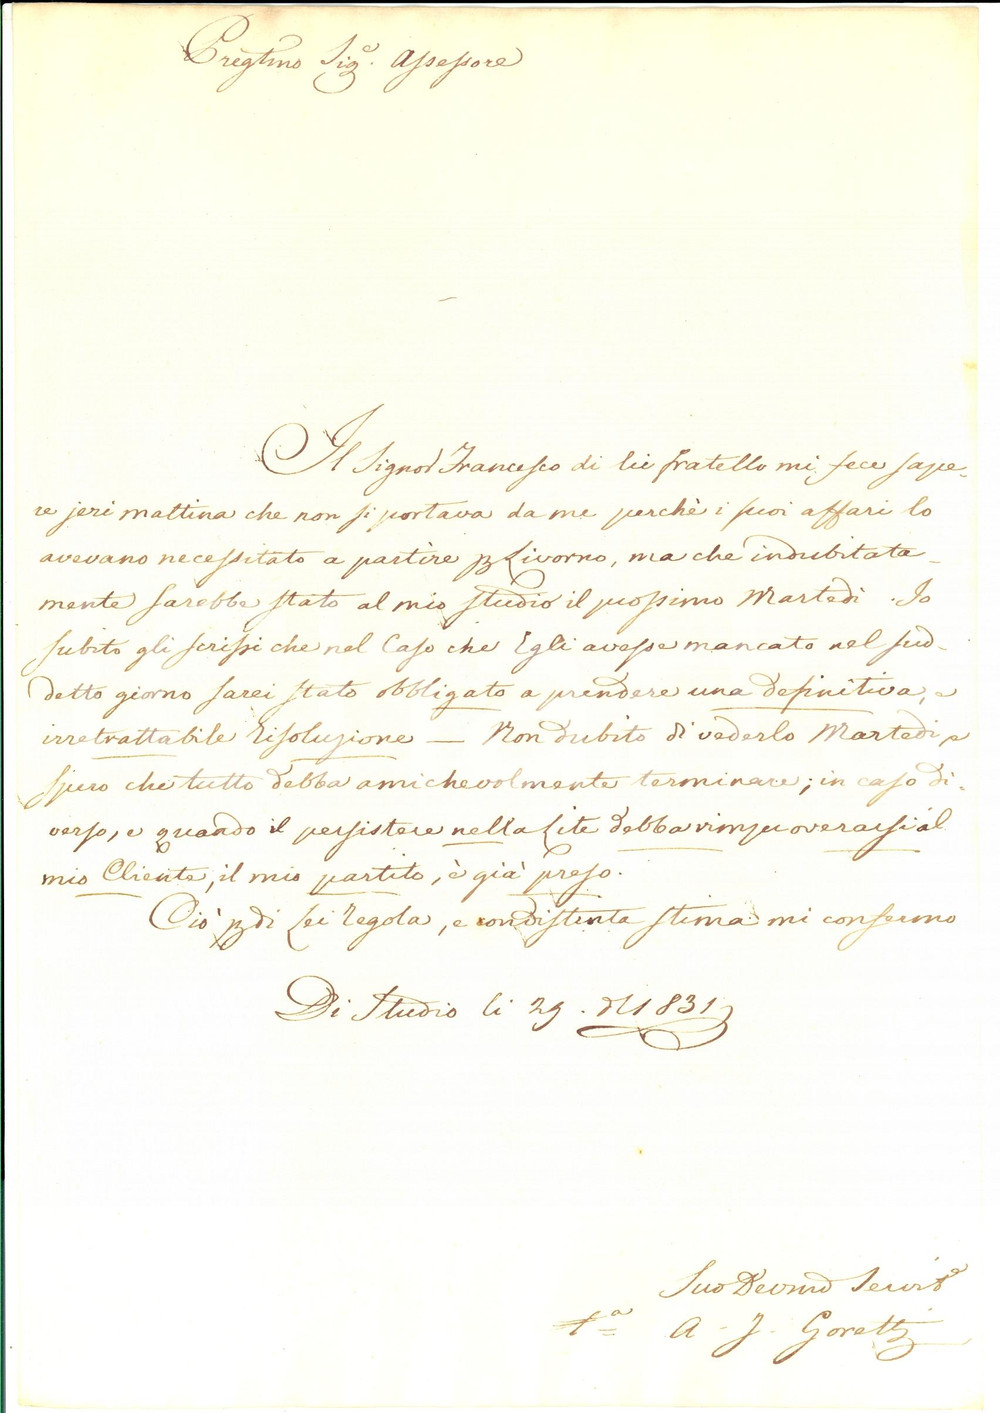 Pregmo Sig.e Assessore
Il Signor Francesco di lei fratello mi fece sape-
re jeri mattina che non si portava da me perchè i suoi affari lo
avevano necessitato a partire p Livorno, ma che indubitata-
mente sarebbe stato al mio studio il prossimo Martedi. Io
subito gli scrissi che nel Caso che Egli avesse mancato nel sud-
detto giorno sarei stato obbligato a prendere una definitiva, e
irretrattabile risoluzione — Non dubito di vederlo Martedi, e
spero che tutto debba amichevolmente terminare; in caso di-
verso, e quando il persistere nella Lite debba rimproverarsi al
mio Cliente, il mio partito, è già preso.
Ciò p di Lei regola, e con distinta stima mi confermo
Di Studio li 29. 1831
Suo Devmo Servit.e
A. J. Goretti